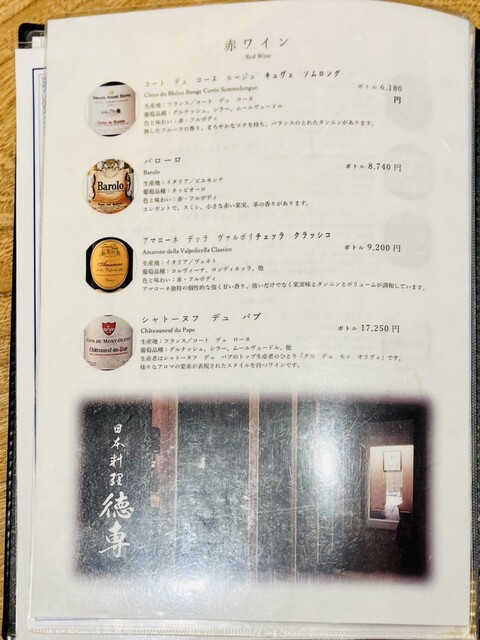 赤ワイン
Red Wine
コート デュ ローヌ ルージュ キュヴェ ソムロング
Côtes du Rhône Rouge Cuvée Sommelongue
ボトル 6,180
円
生産地：フランス／コート デュ ローヌ
葡萄品種：グルナッシュ、シラー、ムールヴェードル
色と味わい：赤・フルボディ
熟したフルーツの香り、まろやかなコクを持ち、バランスのとれたタンニンがあります。
バローロ
Barolo
ボトル 8,740 円
生産地：イタリア／ピエモンテ
葡萄品種：ネッビオーロ
色と味わい：赤・フルボディ
エレガントで、スミレ、小さな赤い果実、革の香りがあります。
Barolo
アマローネ デッラ ヴァルポリチェッラ クラッシコ
Amarone della Valpolicella Classico
ボトル 9,200 円
生産地：イタリア／ヴェネト
葡萄品種：コルヴィーナ、ロンディネッラ、他
色と味わい：赤・フルボディ
アマローネ独特の個性的な強く甘い香り。強いだけでなく果実味とタンニンとボリュームが調和しています。
Amarone
シャトーヌフ デュ パプ
Châteauneuf du Pape
ボトル 17,250 円
生産地：フランス／コート デュ ローヌ
葡萄品種：グルナッシュ、シラー、ムールヴェードル、他
生産者はシャトーヌフ デュ パプのトップ生産者のひとり「クロ デュ モン オリヴェ」です。
様々なアロマの要素が表現されたスタイルを持つワインです。
CLOS DU MONT-OLIVET
Châteauneuf-du-Pape
日本料理
徳専